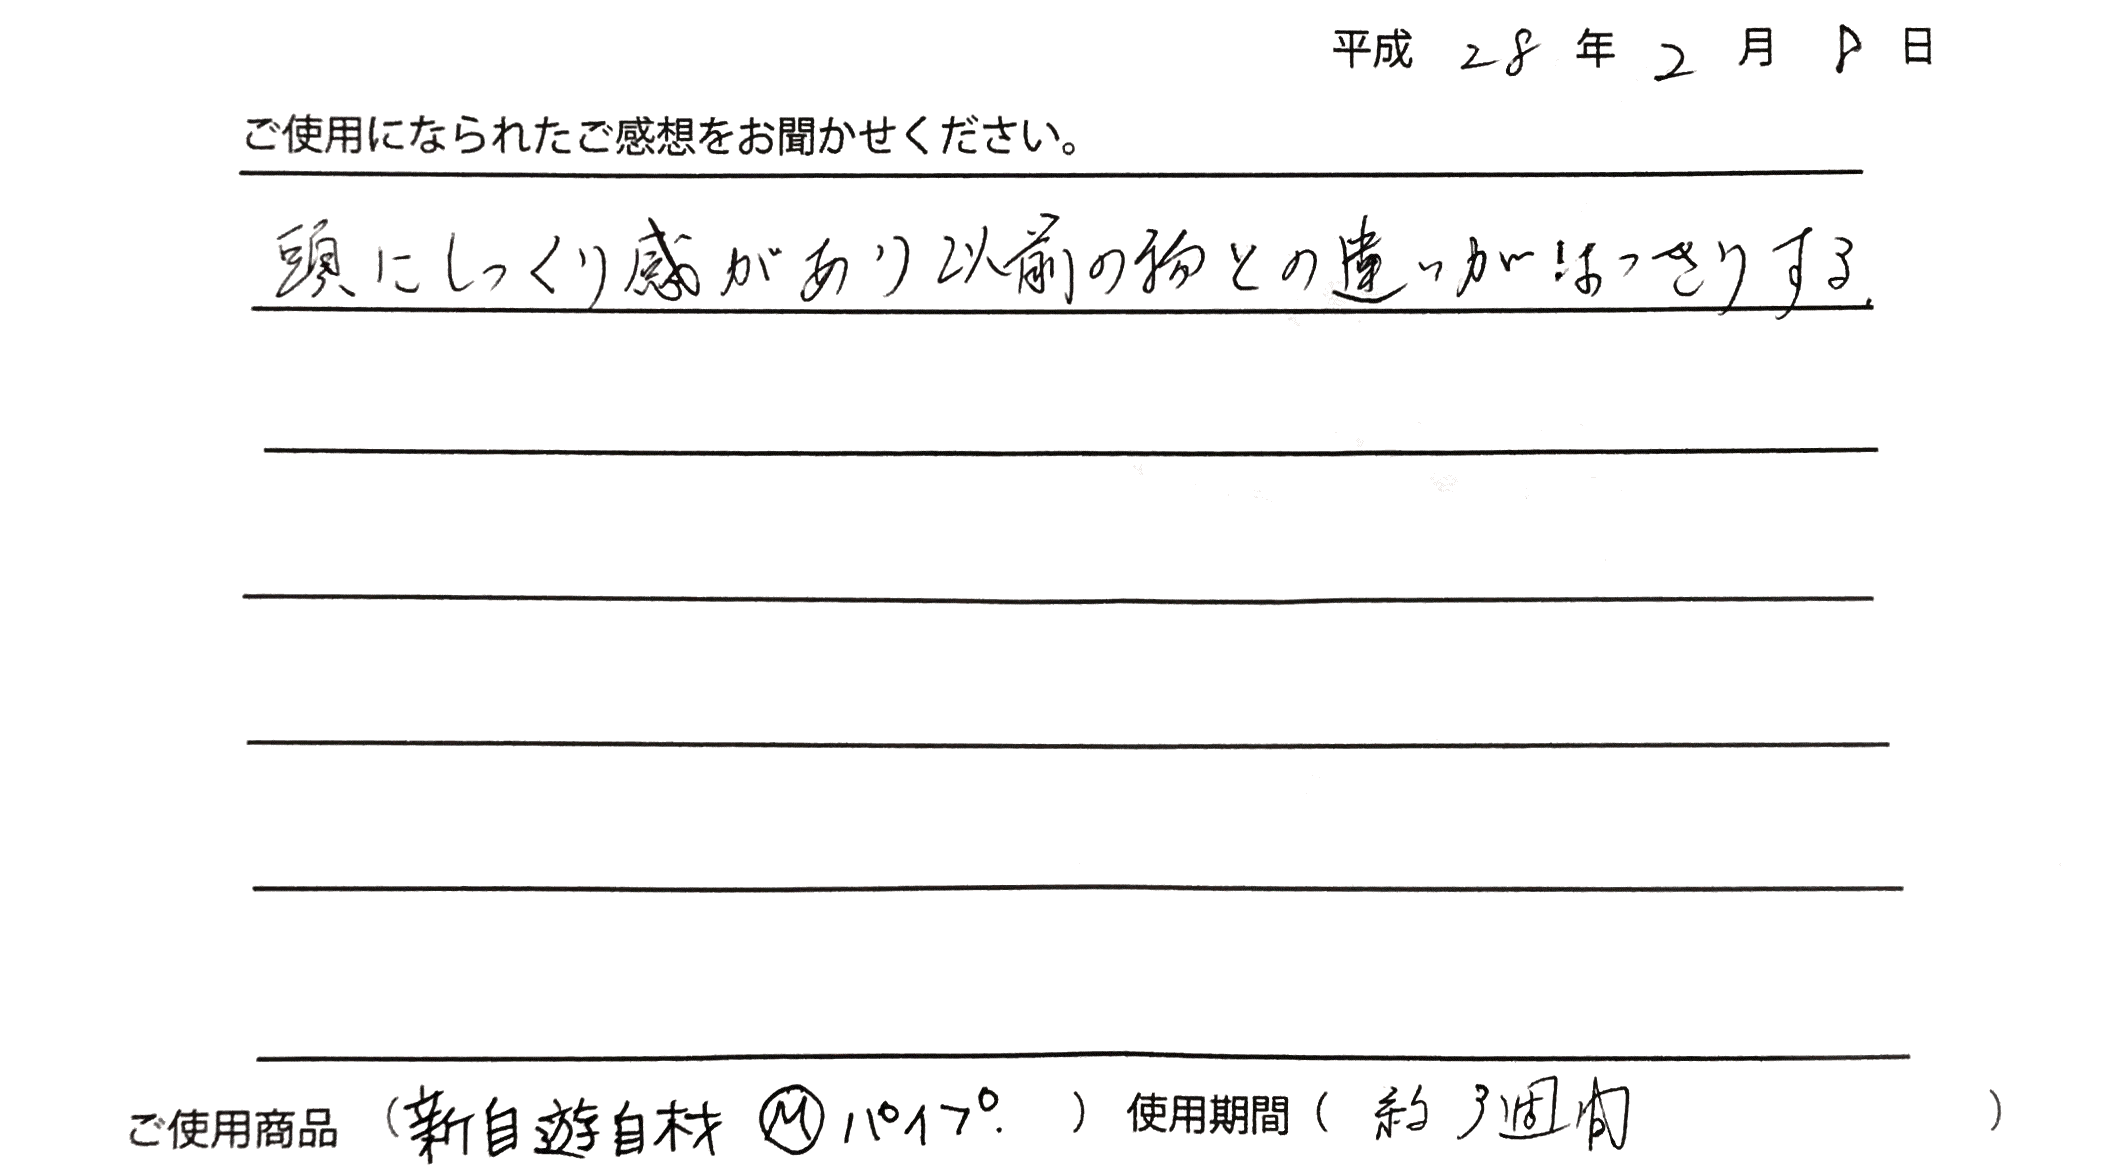 平成 28 年 2 月 8 日
ご使用になられたご感想をお聞かせください。
頭にしっくり感があり以前の物との違いがはっきりする.
ご使用商品 (新自遊自材 Ⓜ パイプ. ) 使用期間 ( 約3週間 )